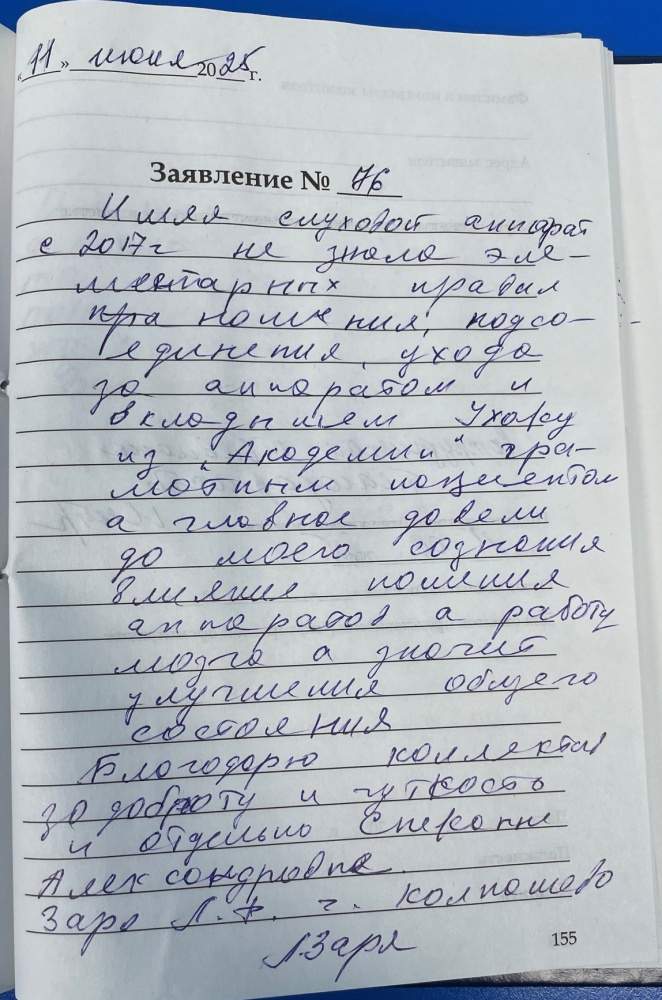 "11" июня 2025 г.
Заявление № 76
Имея слуховой аппарат
с 2017г не знала эле-
ментарных правил
пра ношения, подсо-
единения, ухода
за аппаратом и
вкладышем Ухожу
из "Академии" гра-
мотным пациентом
а главное довели
до моего сознания
влияние ношения
аппаратов а работу
мозга а значит
улучшения общего
состояния
Благодарю коллектив
за доброту и чуткость
и отдельно
Александровне.
Заря Л. г. Колпашево
Л.Заря
155